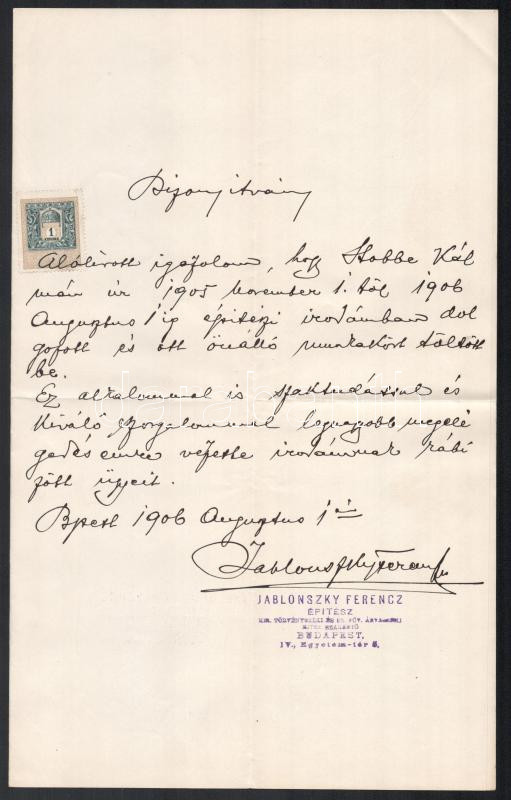 Bizonyítvány
1
Alólirott igazolom, hogy Stobbe Kál
mán úr 1905 November 1. től 1906
Augusztus 1 ig építészi irodámban dol
gozott és ott önálló munkakört töltött
be.
Ez alkalommal is szaktudással és
kiváló szorgalommal legnagyobb megelé
gedésemre vezette irodámnak rábí
zott ügyeit.
Bpest 1906 Augusztus 1 én
Jablonszky Ferencz
JABLONSZKY FERENCZ
ÉPITÉSZ
BUDAPEST,
IV., Egyetem-tér 5.